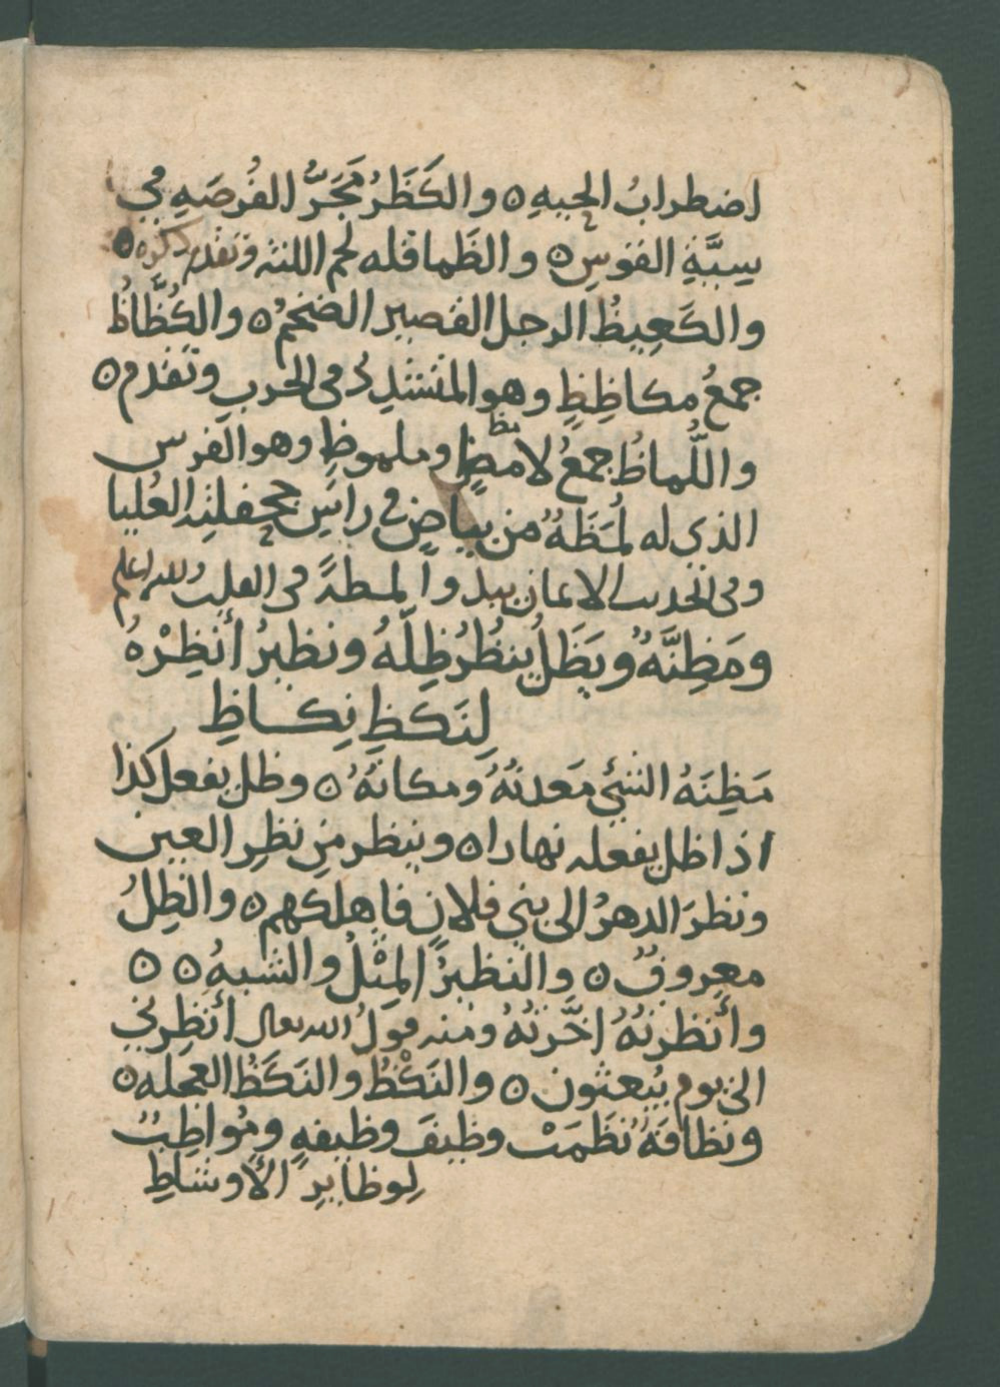 اضطرابُ الحيهِ ٥ والكَظَرُ مَجَرُّ الفُرصَهِ في
سِيَّةِ القوسِ ٥ والظَما قله لحم اللثه وتقدم ذكره ٥
والكَعِيظُ الرجل القصير الضخمُ ٥ والكُظَّاظُ
جمعُ مكاظِظٍ وهو المتشدِدُ في الحربِ وتقدم ٥
واللُّماظُ جمعُ لامظٍ وملموظٍ وهو الفرس
الذي له لُمَظَهٌ من بياضٍ في راسِ جحفلتِه العُليا
وفي الحديث الايمان يبدوا لمظةً في القلب والله اعلم
ومَظِنَّهٌ ويَظَلُ ينظُرُ ظِلَّهُ ونظيرُ أنظِرْهُ
لِنَكَظٍ نِكاظِ
مَظِنَهُ الشئِي مَعدنُهُ ومكانَهُ ٥ وظل يفعل كذا
اذا ظل يفعله نهارا ٥ وينظر مِن نظرِ العين
ونظرَ الدهرُ الى بني فلانٍ فاهلكهم ٥ والظِلُ
معروفٌ ٥ والنظيرُ المِثْلُ والشبهُ ٥ ٥
وأنظرتُهُ اخَّرتُهُ ومنه قولُ الله تعالى أنظِرني
الى يوم يبعثون ٥ والنَكْظُ والنَكَظُ العجله ٥
ونظافَهٌ نَظَمَتْ وظيفَ وظيفهٍ ومُواظِبٌ
لِوظايرِ الأوشاظِ